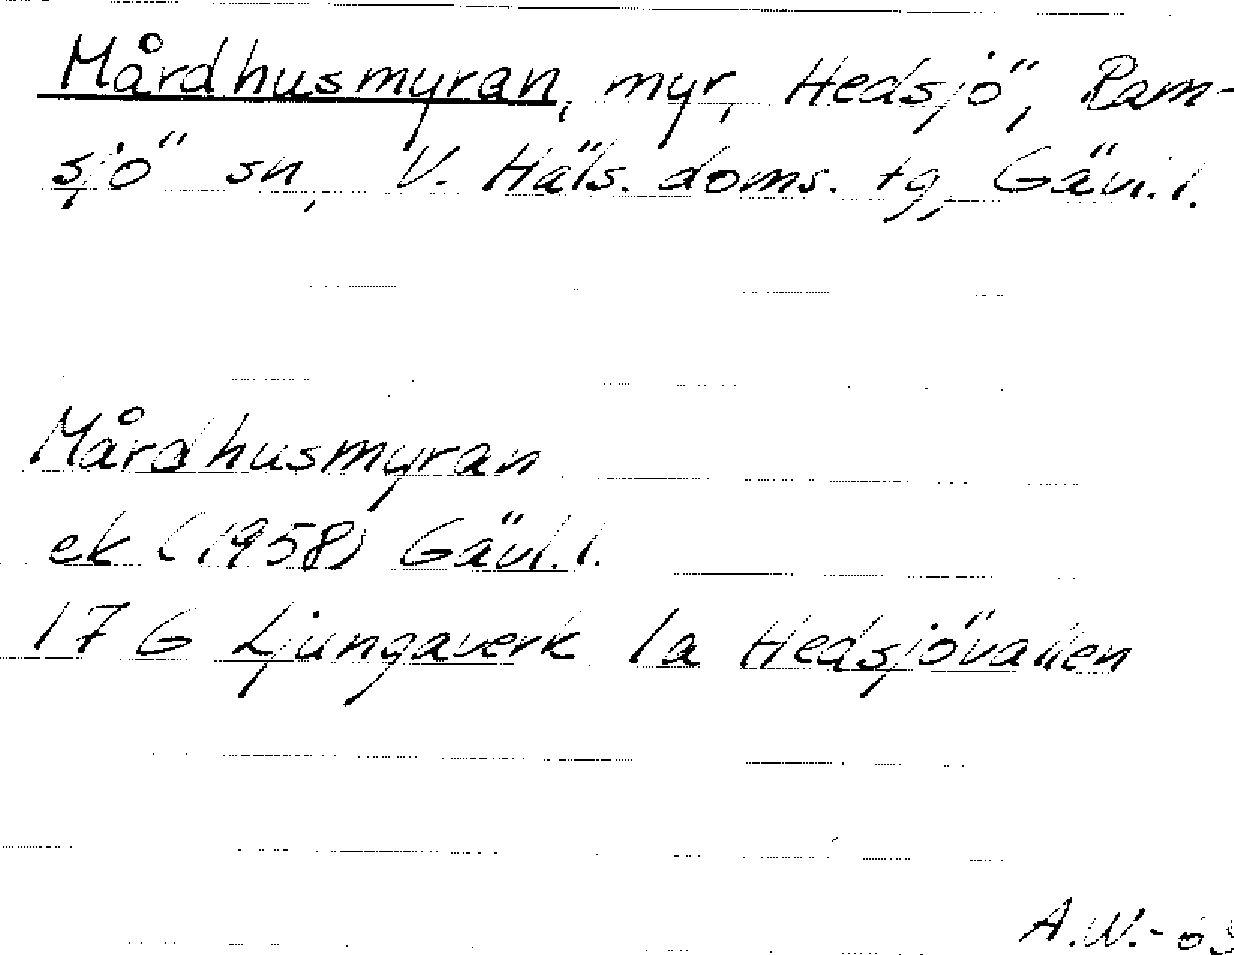 Mårdhusmyran, myr, Hedsjö, Ram-
sjö sn, V. Häls. doms. tg, Gävl. l.
Mårdhusmyran
ek (1958) Gävl. l.
17 G Ljungaverk 1a Hedsjövallen
A.W.-